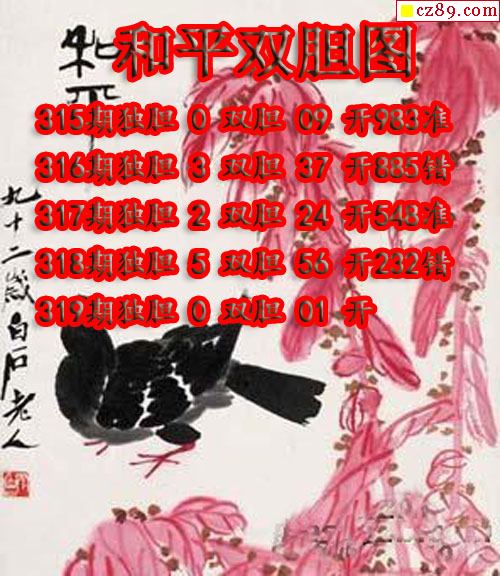 cz89.com
和平双胆图
和平
315期独胆 0 双胆 09 开983准
316期独胆 3 双胆 37 开885错
317期独胆 2 双胆 24 开548准
318期独胆 5 双胆 56 开232错
319期独胆 0 双胆 01 开
九十二岁白石老人